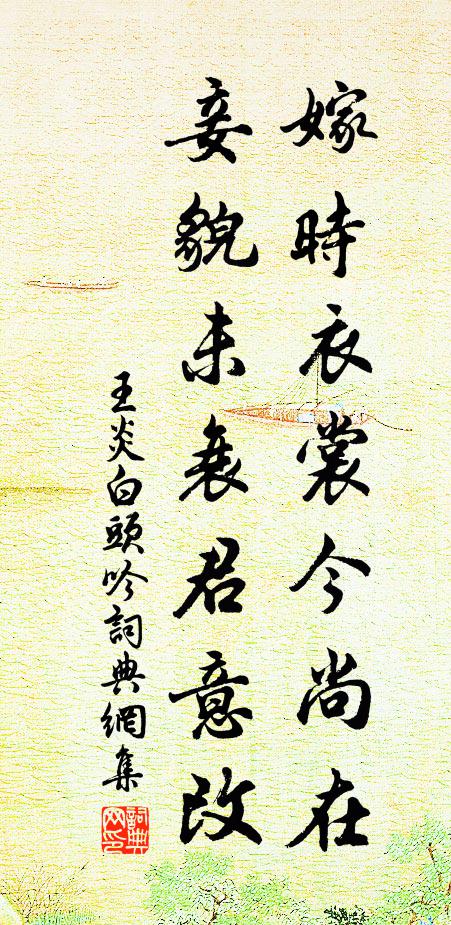 嫁時衣裳今尚在
妾貌未衰君意改
王炎白頭吟詞典網集
詞典
网印